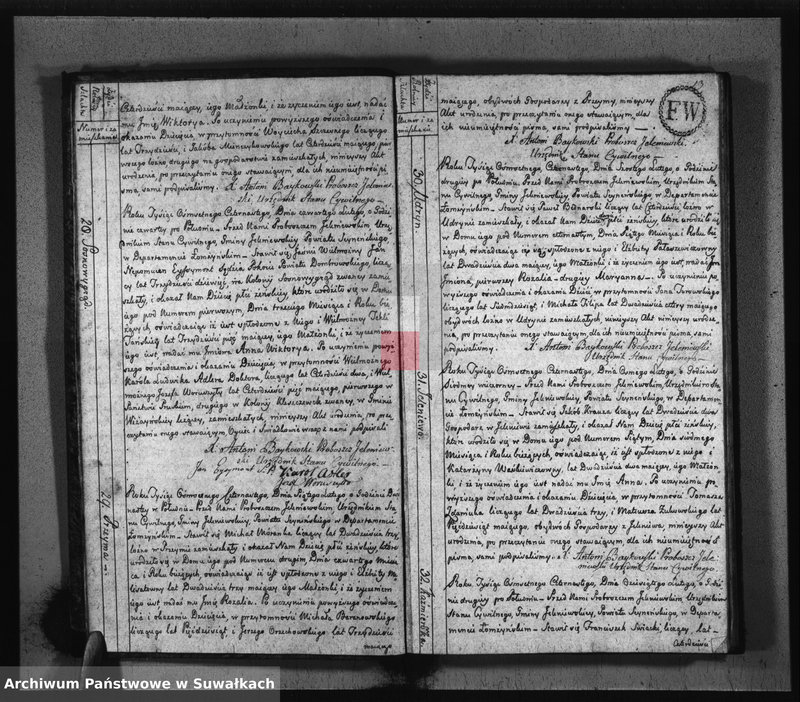 Czterdzieści maiący, iego Małżonki, i że życzeniem iego iest, nadać
mu Jmię Wiktorya. Po uczynieniu powyższego oświadczenia i
okazaniu Dziecięcia w przytomności Woyciecha liczącego
lat Trzydzieści, i Jakóba Mieczykowskiego lat Czterdzieści maiącego, pier-
wszego drugiego na gospodarstwie zamieszkałych, ninieyszy Akt
urodzenia, po przeczytaniu onego stawaiącym, dla ich nieumieiętności pi-
sma, sami podpisaliśmy. X. Antoni Baykowski Proboszcz Jeleniew-
ski Urzędnik Stanu Cywilnego
Numer i za
mieszkanie
29.
Roku Tysiąc Osmsetnego Czternastego, Dnia czwartego Lutego, o Godzi-
nie czwartey po Południu. Przed Nami Proboszczem Jeleniewskim, Urzę-
dnikiem Stanu Cywilnego, Gminy Jeleniewskiey Powiatu Seyneńskiego,
w Departamencie Łomżyńskim. Stawił się Wielmożny Jan
Nepomucen Sędzia Pokoiu Powiatu Dombrowskiego, liczą-
cy lat Trzydzieści dziewięć, w Kolonij Sosnowygrąd zwaney zamie-
szkały, i okazał Nam Dziecię płci żeńskiey, które urodziło się w Domu
iego pod Numerem pierwszym, Dnia trzeciego Miesiąca i Roku bie-
żących, oświadczaiąc iż iest spłodzone z Niego i Wielmożney Tekli
lat Trzydzieści pięć maiącey, iego Małżonki i że życzeniem
iego iest, nadać mu Jmiona Anna Wiktorya. Po uczynieniu powyż-
szego oświadczenia i okazaniu Dziecięcia, w przytomności Wielmożnego
Karola Ludwika Adlera Doktora, liczącego lat Czterdzieści dwa, i Wiel-
możnego Józefa lat Czterdzieści pięć maiącego, pierwszego w
drugiego w Kolonij Kleszczowek zwaney, w Gminie
leżącey, zamieszkałych, ninieyszy Akt urodzenia, po prze-
czytaniu onego stawaiącym, Oyciec i Świadkowie wraz z nami podpisali
X. Antoni Baykowski Proboszcz Jeleniew-
ski Urzędnik Stanu Cywilnego
Jan
29.
Roku Tysiąc Osmsetnego Czternastego, Dnia Szóstego Lutego o Godzinie Dwu-
nastey w Południe. Przed Nami Proboszczem Jeleniewskim Urzędnikiem Sta-
nu Cywilnego, Gminy Jeleniewskiey, Powiatu Seyneńskiego w Departamencie
Łomżyńskim. Stawił się Michał liczący lat Dwadzieścia trzy,
zamieszkały i okazał Nam Dziecię płci żeńskiey, które
urodziło się w Domu iego pod Numerem drugim, Dnia czwartego Miesią-
ca i Roku bieżących, oświadczaiąc iż iest spłodzone z niego i Elżbiety
lat Dwadzieścia trzy maiącey, iego Małżonki i że życzeniem
iego iest nadać mu Jmię Rozalia. Po uczynieniu powyższego oświadcze-
nia i okazaniu Dziecięcia, w przytomności Michała Baranowskiego
liczącego lat Pięćdziesiąt, i Jerzego Orzechowskiego lat Trzydzieści
maiącego
13
FW
maiącego, obydwóch Gospodarzy z ninieyszy
Akt urodzenia, po przeczytaniu onego stawaiącym, dla
ich nieumieiętności pisma, sami podpisaliśmy.
X. Antoni Baykowski Proboszcz Jeleniewski
Urzędnik Stanu Cywilnego
Numer i za
mieszkanie
30.
Roku Tysiąc Osmsetnego Czternastego, Dnia Szóstego Lutego, o Godzinie
drugiey po Południu. Przed Nami Proboszczem Jeleniewskim, Urzędnikiem Sta-
nu Cywilnego Gminy Jeleniewskiey, Powiatu Seyneńskiego w Departamencie
Łomżyńskim. Stawił się Paweł liczący lat Czterdzieści, w
Udrynie zamieszkały, i okazał Nam Dzieci płci żeńskiey, które urodziło się
w Domu iego pod Numerem czternastym, Dnia Piątego Miesiąca i Roku bie-
żących, oświadczaiąc iż są spłodzone z niego i Elżbiety
lat Dwadzieścia dwa maiącey, iego Małżonki i że życzeniem iego iest, nadać im
Jmiona, pierwszey Rozalia, drugiey Maryanna. Po uczynieniu po-
wyższego oświadczenia i okazaniu Dzieci, w przytomności Jana
liczącego lat Siedmdziesiąt, i Michała Filipa lat Dwadzieścia cztery maiącego
obydwóch w Udrynie zamieszkałych, ninieyszy Akt urodze-
nia, po przeczytaniu onego stawaiącym, dla ich nieumieiętności pisma, sami
podpisaliśmy. X. Antoni Baykowski Proboszcz Jeleniewski
Urzędnik Stanu Cywilnego
31. Jeleniewo
Roku Tysiąc Osmsetnego Czternastego, Dnia Osmego Lutego, o Godzinie
Siódmey wieczorney. Przed Nami Proboszczem Jeleniewskim, Urzędnikiem Sta-
nu Cywilnego, Gminy Jeleniewskiey, Powiatu Seyneńskiego, w Departamen-
cie Łomżyńskim. Stawił się Jakób Krauza liczący lat Czterdzieści dwa
Gospodarz w Jeleniewie zamieszkały, i okazał Nam Dziecię płci żeńskiey,
które urodziło się w Domu iego pod Numerem Szóstym, Dnia siódmego
Miesiąca i Roku bieżących, oświadczaiąc, iż iest spłodzone z niego i
Katarzyny lat Dwadzieścia dwa maiącey, iego Małżon-
ki, i że życzeniem iego iest nadać mu Jmię Anna. Po uczynieniu po-
wyższego oświadczenia i okazaniu Dziecięcia, w przytomności Tomasza
liczącego lat Dwadzieścia trzy, i Mateusza Żukowskiego lat
Pięćdziesiąt maiącego, obydwóch Gospodarzy z Jeleniewa, ninieyszy Akt
urodzenia, po przeczytaniu onego stawaiącym, dla ich nieumieiętności
pisma, sami podpisaliśmy. X. Antoni Baykowski Proboszcz Jele-
niewski Urzędnik Stanu Cywilnego
32. Kazmierówka
Roku Tysiąc Osmsetnego Czternastego, Dnia Dziewiątego Lutego, o Godzi-
nie drugiey po Południu. Przed Nami Proboszczem Jeleniewskim, Urzędnikiem
Stanu Cywilnego, Gminy Jeleniewskiey, Powiatu Seyneńskiego, w Departa-
mencie Łomżyńskim. Stawił się Franciszek liczący, lat
Czterdzieści
Archiwum Państwowe w Suwałkach